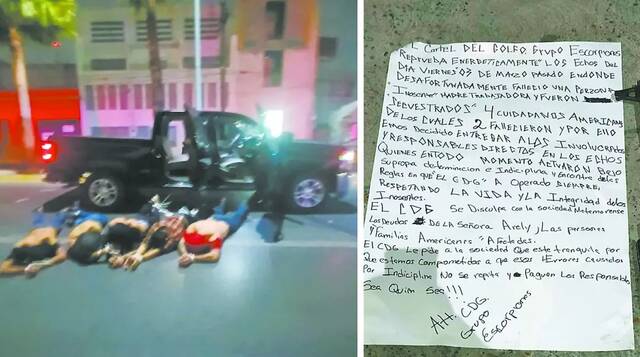 EL Cartel DEL GOLFO Grupo Escorpions
Reprueva Energeticamente" LOS Echos DEL
DIA VIERNES" 03 DE MARZO Pasado EN DONDE
DESAFORTUNADAMENTE Fallecio UNA PERSONA
Inosente" MADRE TRABAJADORA y FUERON
SECUESTRADOS" 4 CUIDADANOS AMERICAN
DE LOS CUALES 2 FALLECIERON y POR ELLO
Emos Decidido ENTREGAR A LAS INVOLUCRADOS
y RESPONSABLES DIRECTOS EN LOS ECHOS
QUIENES EN TODO MOMENTO ACTUARON BAJO
Supropa determinacion e Indiciplina y Encontra deles
Reglas en QUE "EL CDG" A Operado SIEMPRE,
RESPETANDO LA VIDA y LA Integridad delos
Inosentes.
EL CDG Se Disculpa Con la sociedad Matamorense
Los Deudos DE LA SEÑORA Arely y Las personas
y Familias Americanas" Afectadas.
El CDG Le pide a la sociedad Que este tranquila por
Que estamos Comprometidos a que esos "Errores Causados
Por Indiciplina No se repita y Paguen Los Responsables
Sea Quien Sea!!!
Att. CDG
Grupo
Escorpiones